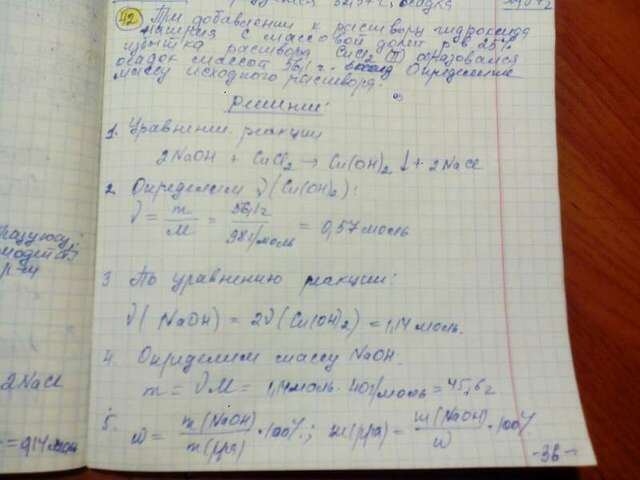 42 При добавлении к раствору гидроксида
натрия с массовой долей р.в 25%
избытка раствора CuCl2 (II) образовался
осадок массой 56,1 г. Определите
массу исходного раствора.
Решение:
1. Уравнение реакции
2NaOH + CuCl2 → Cu(OH)2 ↓ + 2NaCl
2. Определяем ν (Cu(OH)2):
ν = m/M = 56,1г/98г/моль = 0,57 моль
3 По уравнению реакции:
ν( NaOH) = 2ν(Cu(OH)2) = 1,14 моль.
4. Определяем массу NaOH.
m = ν·M = 1,14моль · 40г/моль = 45,6 г
5. ω = m(NaOH)/m(рра) · 100%; m(рра) = m(NaOH)/ω · 100%
-36-
2NaCl
= 0,14 моль
р-ии